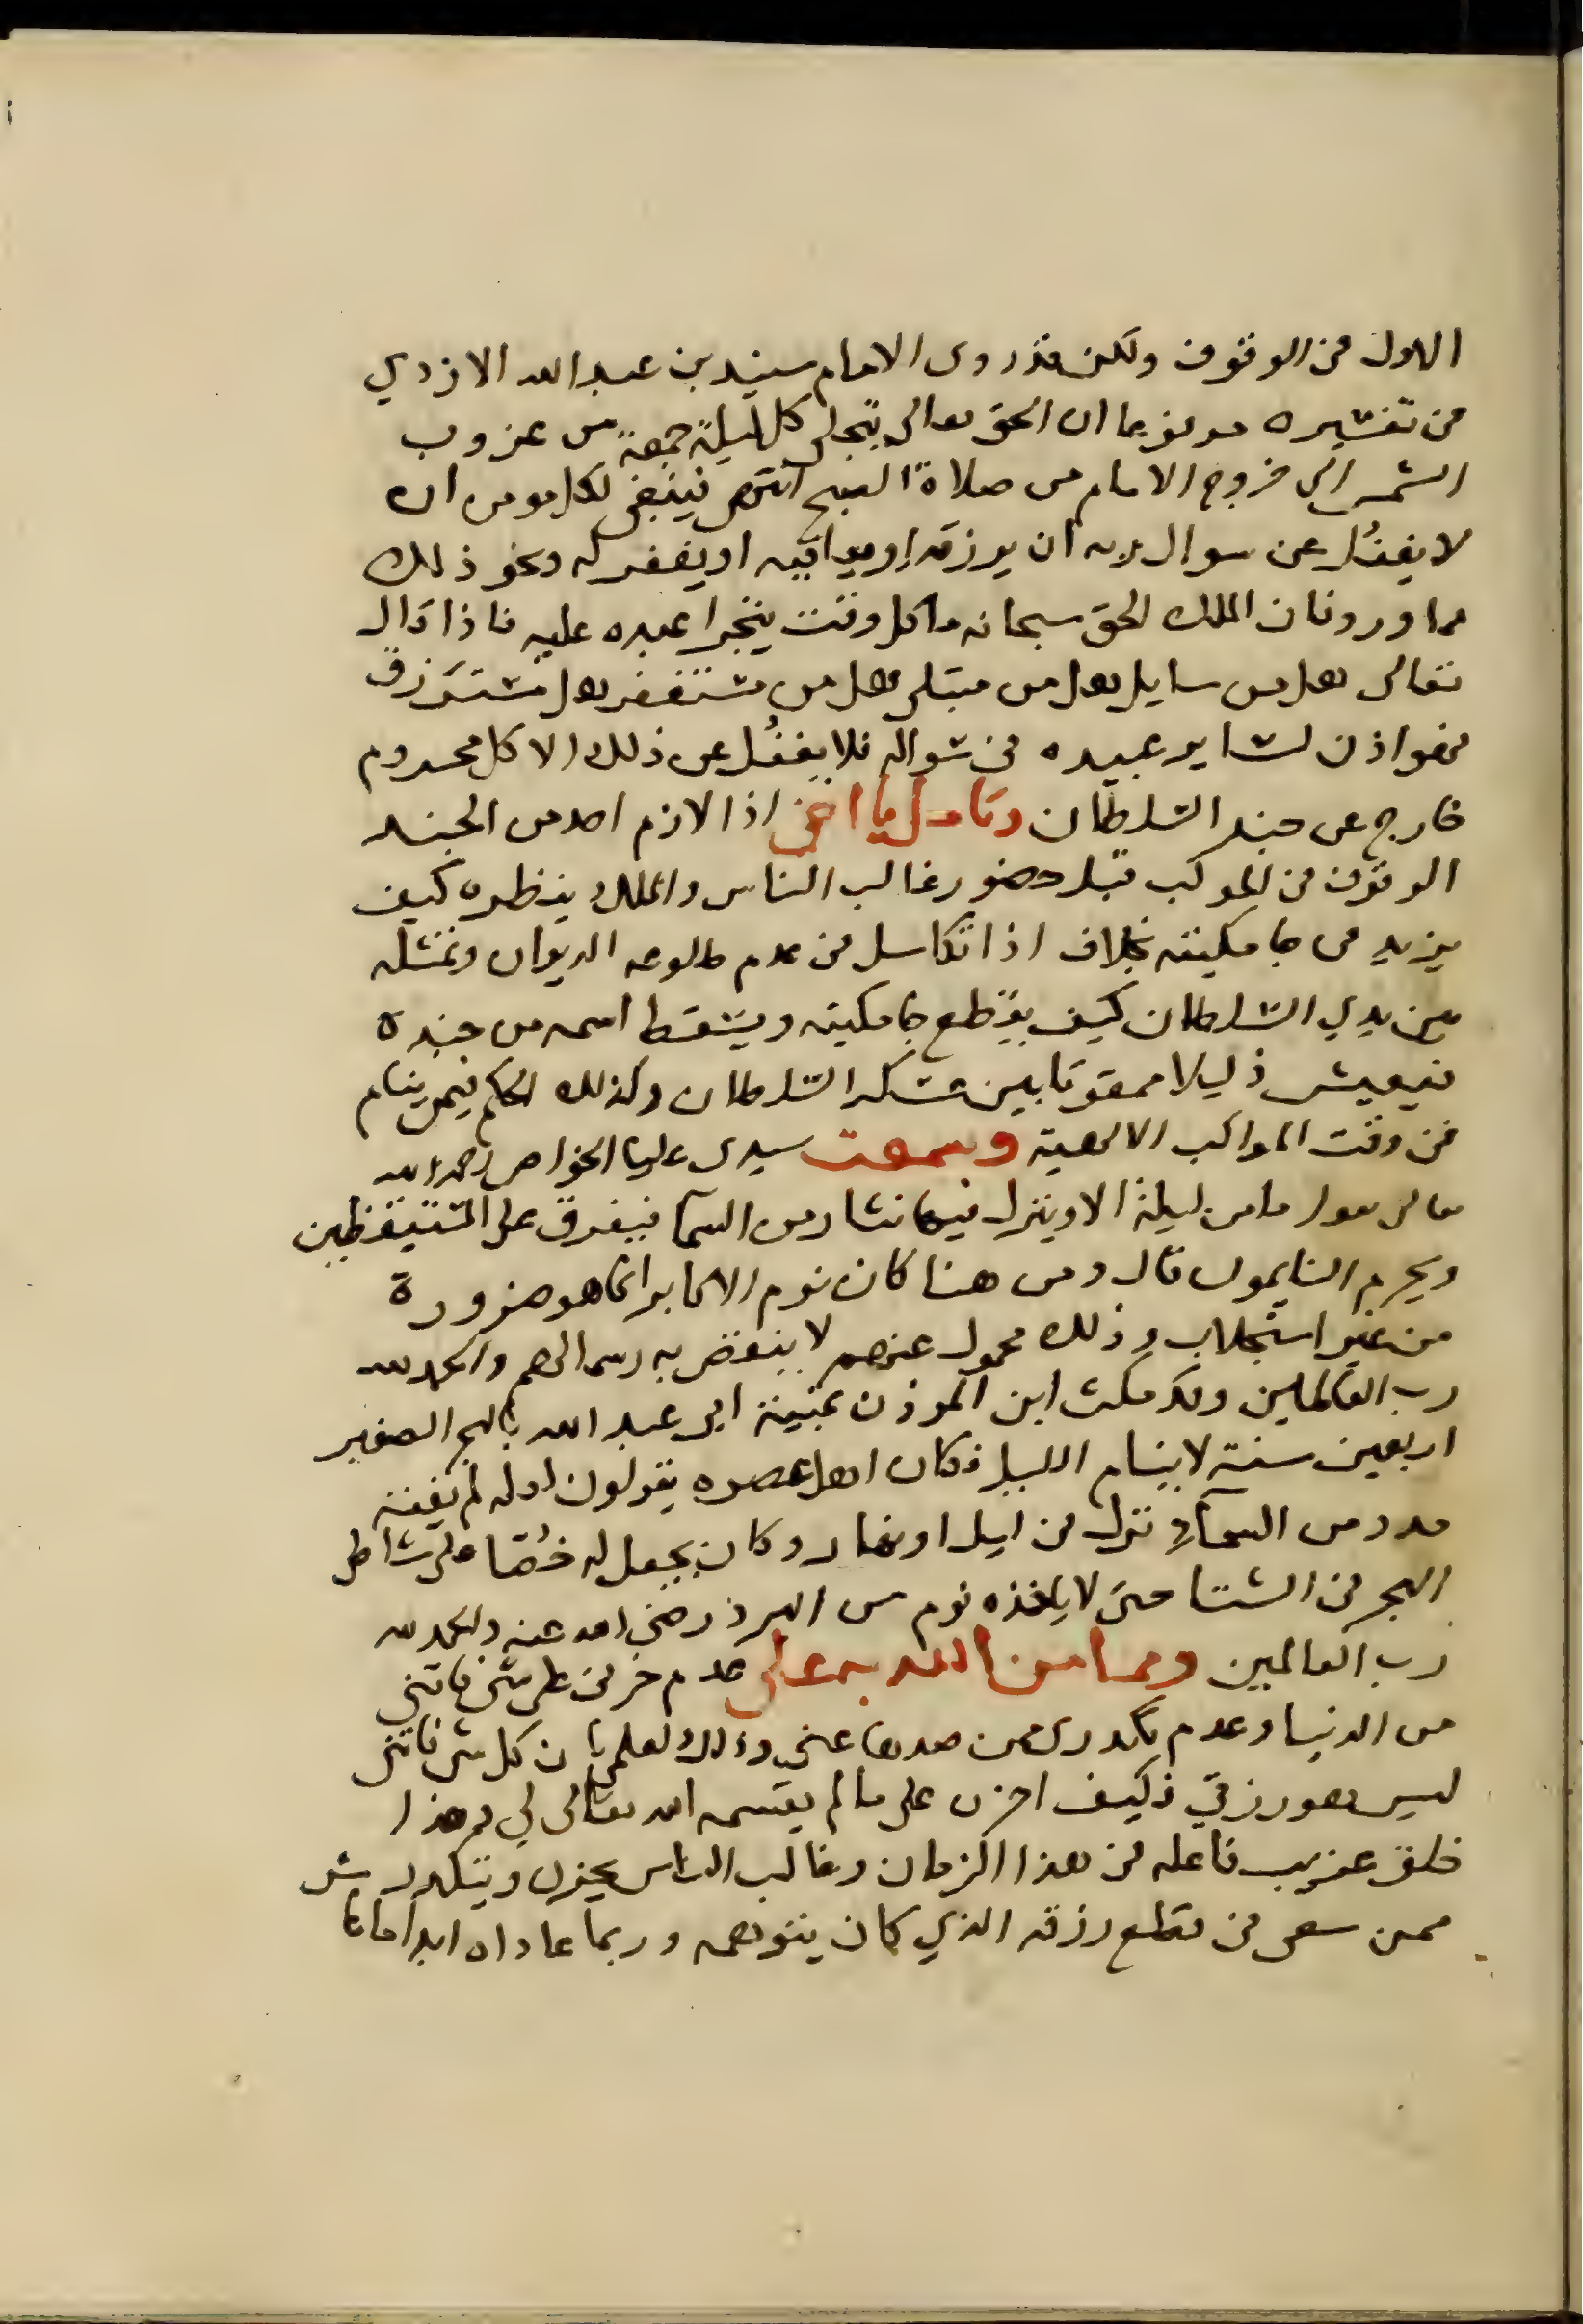 الاول في الوقوف ولكن قد روى الامام سنيد بن عبد الله الازدي
في تفسيره مرفوعا ان الحق تعالى يتجلى كل ليلة جمعة من غروب
الشمس الى خروج الامام من صلاة الصبح انتهى فينبغي لكل مومن ان
لا يغفل عن سوال ربه ان يرزقه او يعافيه او يغفر له ونحو ذلك
مما ورد فان الملك الحق سبحانه ما كل وقت يتجرا عبده عليه فاذا قال
تعالى هل من سايل هل من مبتلى هل من مستغفر هل مسترزق
فهو اذن لساير عبيده في سواله فلا يغفل عن ذلك الا كل محروم
خارج عن جند السلطان وتامل يا اخي اذا لازم احد من الجند
الوقوف في الموكب قبل حضور غالب الناس والملك ينظره كيف
يزيد في جامكيته بخلاف اذا تكاسل في عدم طلوعه الديوان وتمثله
بين يدي السلطان كيف يقطع جامكيته ويسقط اسمه من جنده
فيعيش ذليلا ممقوتا بين عسكر السلطان وكذلك الحكم فيمن ينام
في وقت المواكب الالهية وسمعت سيدى عليا الخواص رحمه الله
تعالى يقول ما من ليلة الا وينزل فيها نثار من السما فيفرق على المستيقظين
ويحرم النايمون قال ومن هنا كان نوم الاكابر انما هو ضرورة
من غير استجلاب وذلك محمول عنهم لا ينقض به راسمالهم والحمد لله
رب العالمين وقد مكث ابن الموذن بمنية ابى عبد الله بالبحر الصغير
اربعين سنة لا ينام الليل فكان اهل عصره يقولون له لم يفته
مدد من السماء نزل في ليل او نهار وكان يجعل له خصا على شاطى
البحر في الشتا حتى لا ياخذه نوم من البرد رضي الله عنه والحمد لله
رب العالمين ومما من الله به على عدم حزني على شى فاتني
من الدنيا وعدم تكدرى ممن صدها عني وذلك لعلمي بان كل شى فاتني
ليس هو رزقي فكيف احزن على ما لم يقسمه الله تعالى لي وهذا
خلق غريب فاعله في هذا الزمان وغالب الناس يحزن ويتكدر
ممن سعى في قطع رزقه الذي كان يتوهمه وربما عاداه ابدا ما